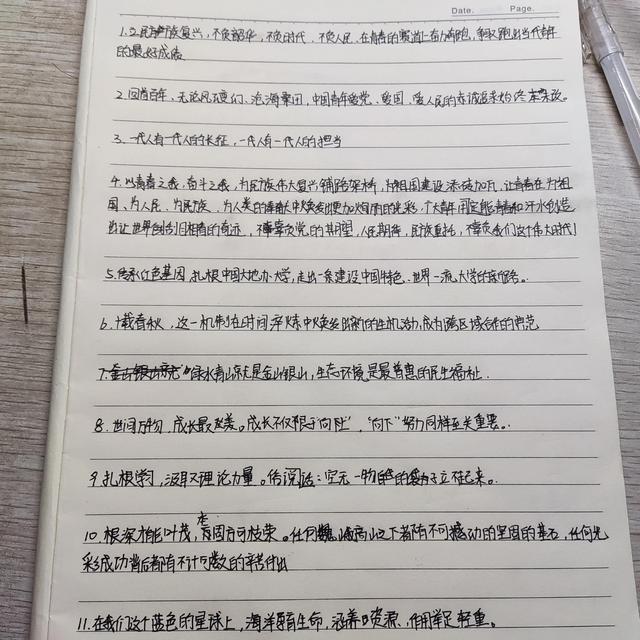 Date.        Page.
1. 立民族复兴,不负韶华,不负时代,不负人民,在青春的赛道上奋力奔跑,争取跑出当代青年
的最好成绩
2. 回首百年,无论风云变幻、沧海桑田,中国青年爱党、爱国、爱人民的赤诚追求始终未改。
3. 一代人有一代人的长征,一代人有一代人的担当
4. 以青春之我,奋斗之我,为民族伟大复兴铺路架桥,为祖国建设添砖加瓦,让青春在为祖
国、为人民、为民族、为人类的奉献中焕发出更加绚丽的光彩,广大青年用智慧和汗水创造
出让世界刮目相看的奇迹,不辜负党的期望,人民期待,民族重托,不辜负我们这个伟大时代!
5. 传承红色基因,扎根中国大地办大学,走出一条建设中国特色、世界一流大学的新路。
6. 十载春秋,这一机制在时间淬炼中焕发出新的生机活力,成为跨区域合作的典范
7. 绿水青山就是金山银山,生态环境是最普惠的民生福祉.
8. 世间万物,成长最美。成长不仅限于"向阳","向下"努力同样至关重要。
9. 扎根学习,汲取理论力量。俗话说:空无一物的袋子立不起来。
10. 根深才能叶茂,本固方可枝荣。任何巍峨高山之下都有不可撼动的坚固的基石,任何光
彩成功背后都有不计可数的辛苦付出
11. 在我们这个蓝色的星球上,海洋孕育生命,涵养资源,作用举足轻重。